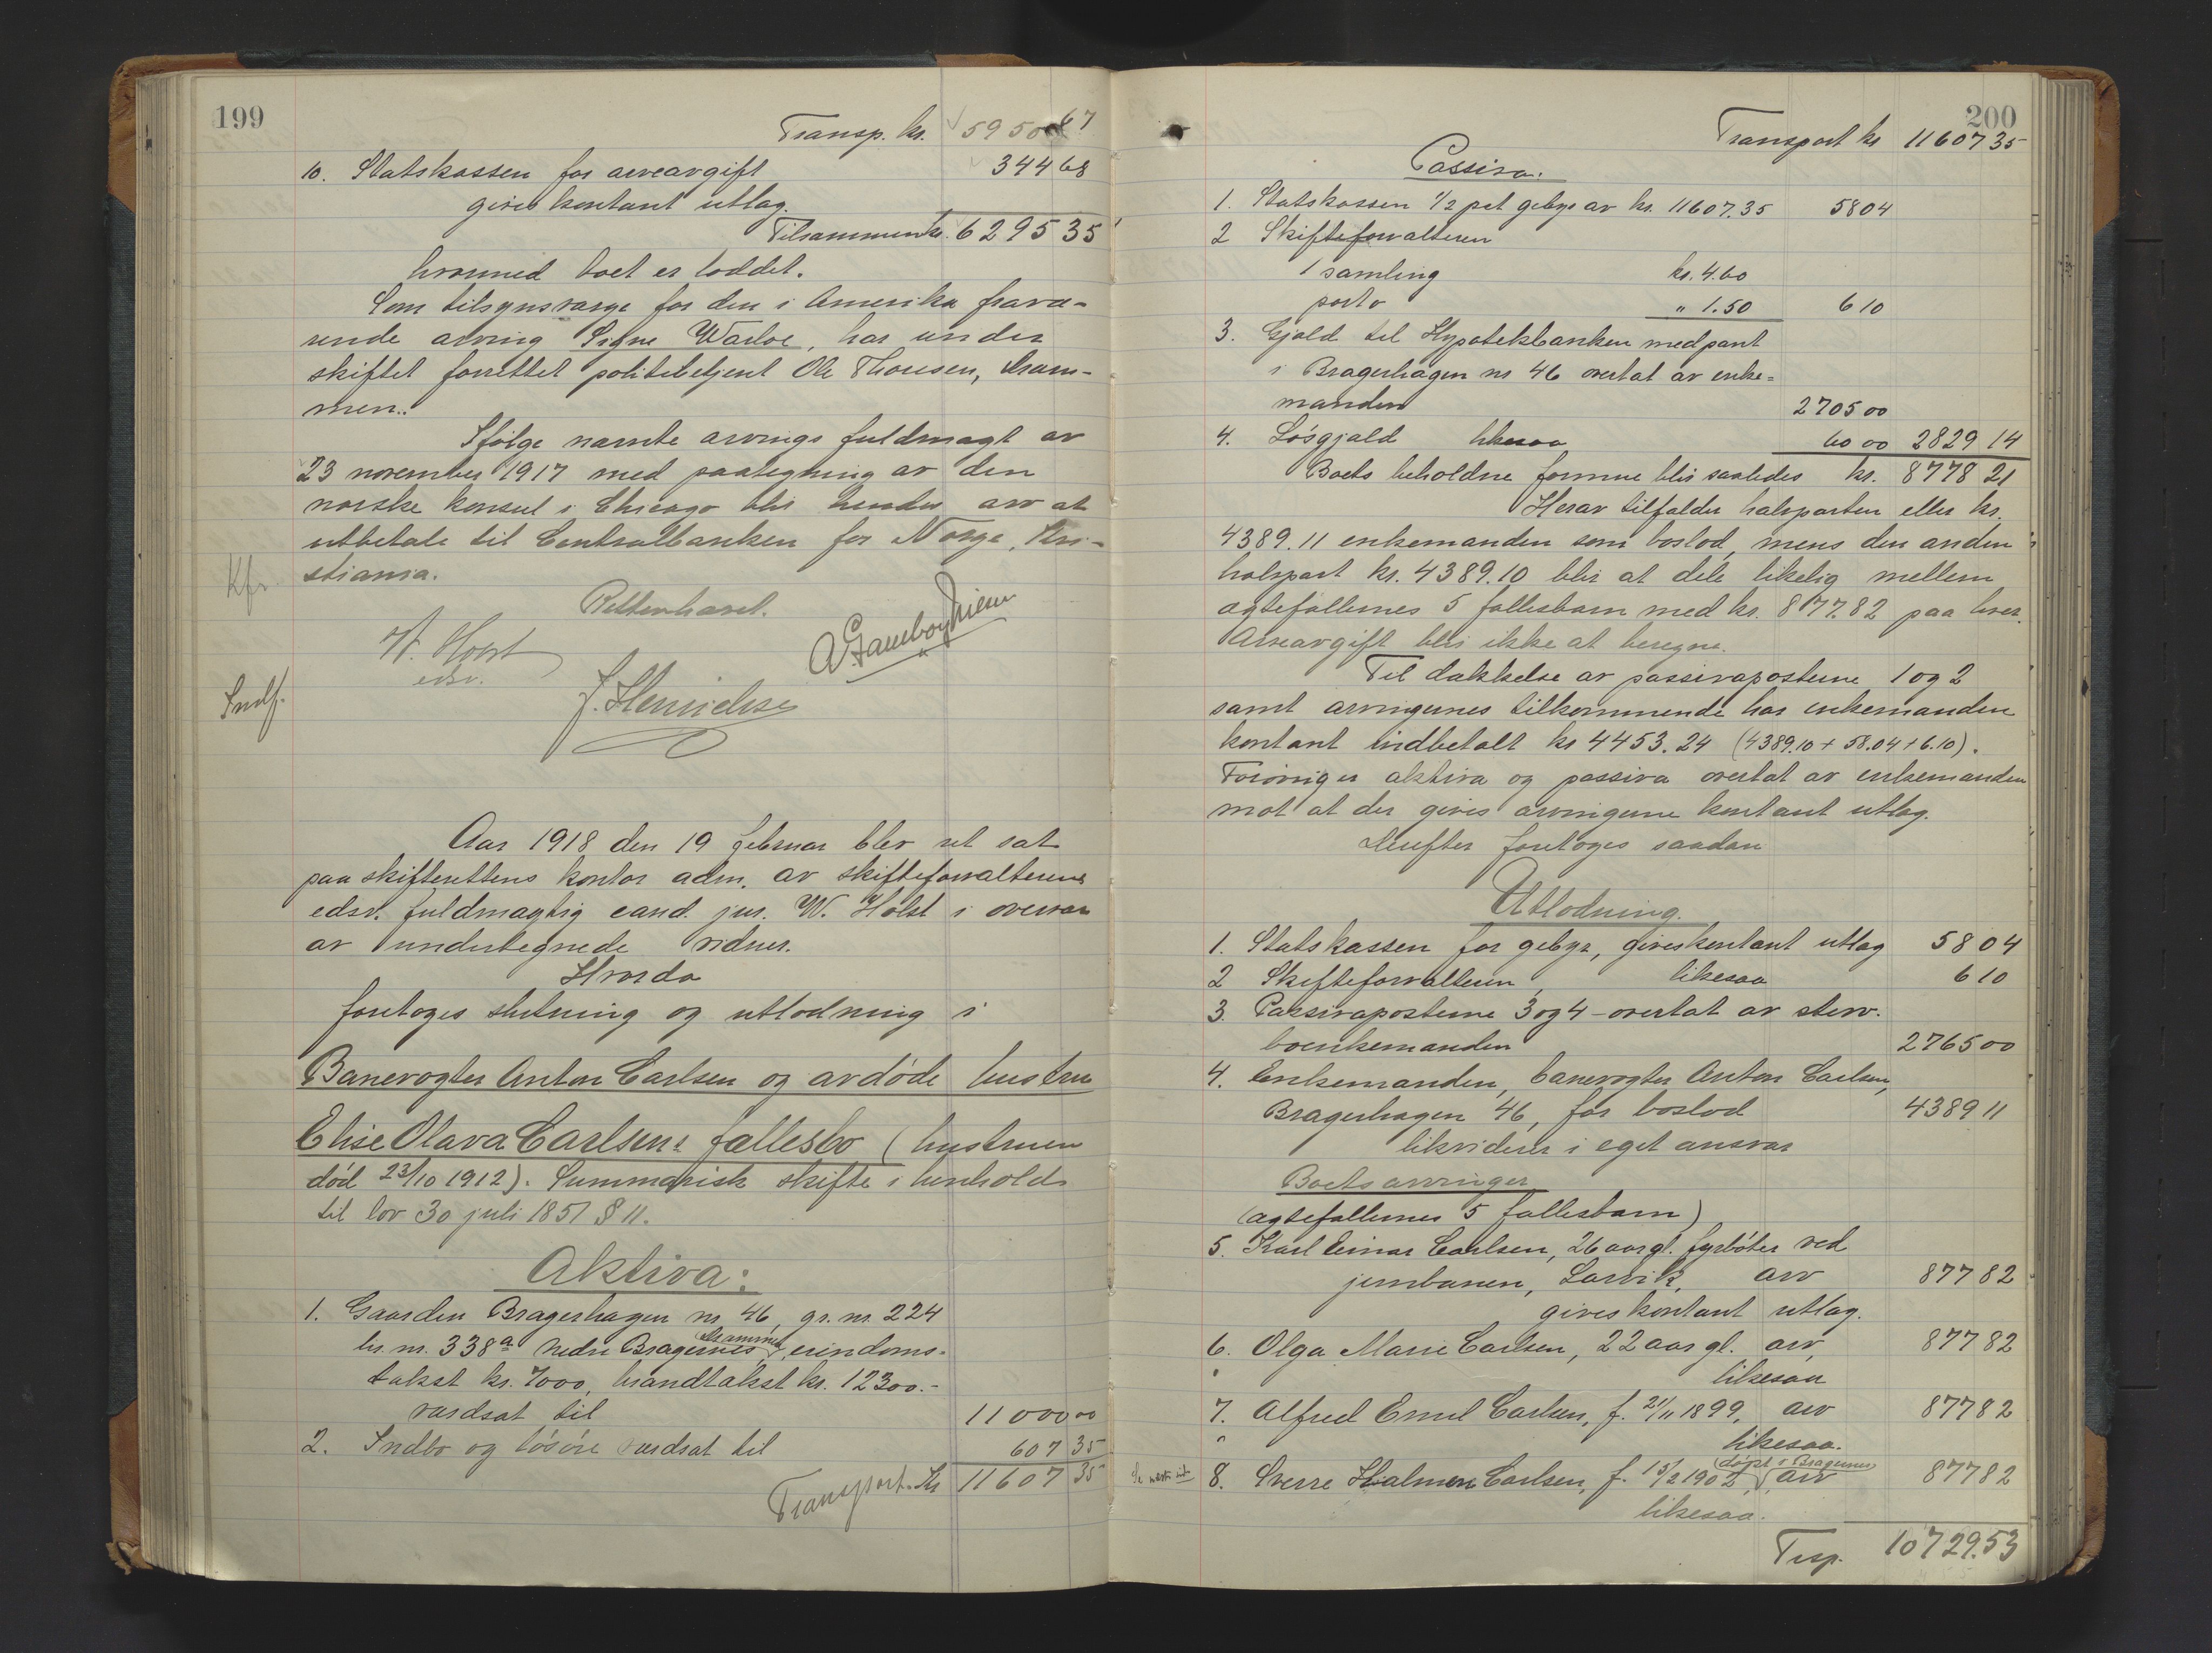 199
Transp. kr. 5950 67
10. Statskassen for arveavgift 344 68
gives kontant utlæg.
Tilsammen kr. 6295 35
hvormed boet er loddet.
Som tilsynsværge for den i Amerika fravæ-
rende arving Signe Warloe, har under
skiftet forrettet politibetjent Ole Thoresen, Dram-
men.
Ifølge nævnte arvings fuldmagt av
23 november 1917 med paategning av den
norske konsul i Chicago blir hendes arv at
utbetale til Centralbanken for Norge, Kri-
stiania.
Kfr.
Retten hævet.
W. Holst
edsv.
Indf.
J. Henrichsen
Aar 1918 den 19 februar blev ret sat
paa skifterettens kontor adm. av skifteforvalterens
edsv. fuldmægtig cand. jur. W. Holst i overvær
av undertegnede vidner.
Hvorda
foretoges slutning og utlodning i
Banevogter Anton Carlsen og avdøde hustru
Elise Olava Carlsens fællesbo (hustruen
død 23/10 1912). Summarisk skifte i henhold
til lov 30 juli 1851 § 11.
Aktiva:
1. Gaarden Bragerhagen nr. 46, gr. nr. 224
br. nr. 338a Nedre Bragernes, Drammen, eiendoms-
takst kr. 7000, brandtakst kr. 12300.-
værdsat til 11000 00
2. Indbo og løsøre værdsat til 607 35
Transport. Kr 11607 35
200
Transport kr 11607 35
Passiva.
1. Statskassen 1/2 pct gebyr av kr. 11607.35 58 04
2 Skifteforvalteren
1 samling kr. 4.60
porto " 1.50 6 10
3. Gjæld til Hypotekbanken med pant
i Bragerhagen nr 46 overtat av enke-
manden 2705 00
4. Løsgjæld likesaa 60 00 2829 14
Boets beholdne formue blir saaledes kr. 8778 21
Herav tilfalder halvparten eller kr.
4389.11 enkemanden som boslod, mens den anden
halvpart kr. 4389.10 blir at dele likelig mellem
ægtefællernes 5 fællesbarn med kr. 877.82 paa hver.
Arveavgift blir ikke at beregne.
Til dækkelse av passivaposterne 1 og 2
samt arvingernes tilkommende har enkemanden
kontant indbetalt kr 4453.24 (4389.10 + 58.04 + 6.10).
Forøvrig er aktiva og passiva overtat av enkemanden
mot at der gives arvingerne kontant utlæg.
Derefter foretoges saadan
Utlodning.
1. Statskassen for gebyr, gives kontant utlæg 58 04
2 Skifteforvalteren, likesaa 6 10
3. Passivaposterne 3 og 4 - overtat av sterv-
boenkemanden 2765 00
4. Enkemanden, banevogter Anton Carlsen,
Bragerhagen 46, for boslod 4389 11
likviderer i eget ansvar
Boets arvinger
(ægtefællernes 5 fællesbarn)
5. Karl Einar Carlsen, 26 aar gl. fyrbøter ved
jernbanen, Larvik, arv 877 82
gives kontant utlæg.
6. Olga Marie Carlsen, 22 aar gl. arv, 877 82
likesaa
7. Alfred Emil Carlsen, f. 21/11 1899, arv 877 82
likesaa.
Se neste side 8. Sverre Halmon Carlsen, f. 15/2 1902, (døpt i Bragernes) arv 877 82
likesaa.
Trsp. 10729.53